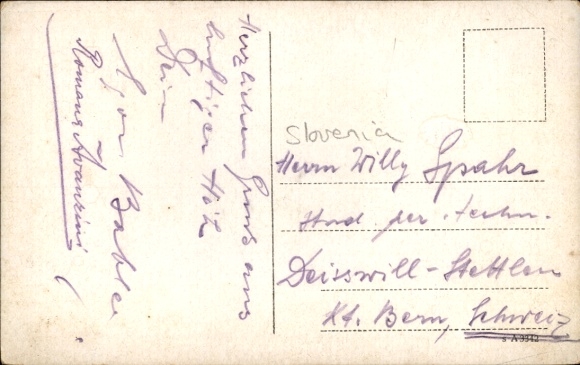 Herzlichen Gruss aus
luftiger Höh
Dein
Egon Babler
Romana Avanzini
Slovenia
Herrn Willy Spahr
Stud der techn.
Deisswill-Stettlen
Kt. Bern, Schweiz
s A 3342